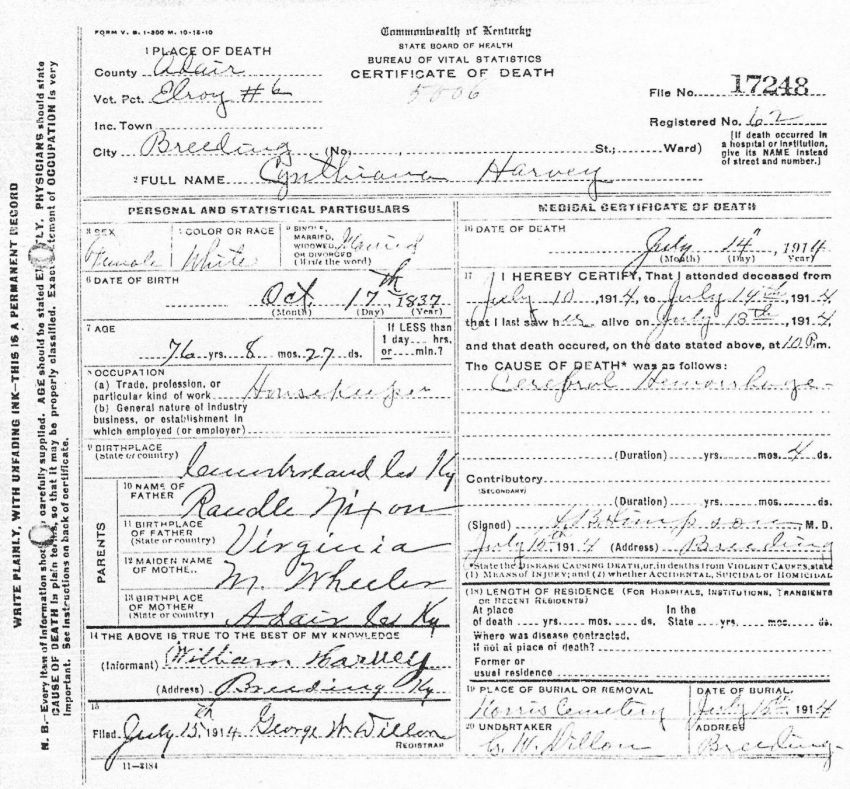 FORM V. S. 1-300 M. 10-15-10
Commonwealth of Kentucky
STATE BOARD OF HEALTH
BUREAU OF VITAL STATISTICS
CERTIFICATE OF DEATH
1 PLACE OF DEATH
County Adair
Vot. Pct. Elroy #6
Inc. Town
City Breeding (No. St.; Ward)
File No. 17248
Registered No. 62
[If death occurred in a hospital or institution, give its NAME instead of street and number.]
2 FULL NAME Cynthiana Harvey
PERSONAL AND STATISTICAL PARTICULARS
3 SEX
Female
4 COLOR OR RACE
White
5 SINGLE, MARRIED, WIDOWED, OR DIVORCED (Write the word)
Married
6 DATE OF BIRTH
Oct. 17th 1837
(Month) (Day) (Year)
7 AGE
76 yrs. 8 mos. 27 ds.
If LESS than 1 day hrs. or min.?
8 OCCUPATION
(a) Trade, profession, or particular kind of work Housekeeper
(b) General nature of industry business, or establishment in which employed (or employer)
9 BIRTHPLACE (State or country)
Cumberland Co Ky
PARENTS
10 NAME OF FATHER
Randle Nixon
11 BIRTHPLACE OF FATHER (State or country)
Virginia
12 MAIDEN NAME OF MOTHE
M. Wheeler
13 BIRTHPLACE OF MOTHER (State or country)
Adair Co Ky
14 THE ABOVE IS TRUE TO THE BEST OF MY KNOWLEDGE
(Informant) William Harvey
(Address) Breeding Ky
15
Filed July 15th, 1914 George W. Dillon
REGISTRAR
11-3184
MEDICAL CERTIFICATE OF DEATH
16 DATE OF DEATH
July 14", 1914
(Month) (Day) Year)
17 I HEREBY CERTIFY, That I attended deceased from
July 10, 1914, to July 14th, 1914
that I last saw her alive on July 13th, 1914,
and that death occured, on the date stated above, at 10 P.m.
The CAUSE OF DEATH* was as follows:
Cerebral Hemorrhage
(Duration) yrs. mos. 4 ds.
Contributory
(SECONDARY)
(Duration) yrs. mos. ds.
(Signed) Simpson, M. D.
July 15th 1914 (Address) Breeding
*State the DISEASE CAUSING DEATH, or, in deaths from VIOLENT CAUSES, state
(1) MEANS OF INJURY; and (2) whether ACCIDENTAL, SUICIDAL or HOMICIDAL
(18) LENGTH OF RESIDENCE (FOR HOSPITALS, INSTITUTIONS, TRANSIENTS OR RECENT RESIDENTS)
At place of death yrs. mos. ds. In the State yrs. mos. ds.
Where was disease contracted,
If not at place of death?
Former or
usual residence
19 PLACE OF BURIAL OR REMOVAL
Norris Cemetery
DATE OF BURIAL,
July 15th 1914
20 UNDERTAKER
G. W. Dillon
ADDRESS
Breeding
WRITE PLAINLY, WITH UNFADING INK—THIS IS A PERMANENT RECORD
N. B.—Every item of information should be carefully supplied. AGE should be stated EXACTLY. PHYSICIANS should state
CAUSE OF DEATH in plain terms, so that it may be properly classified. Exact statement of OCCUPATION is very
important. See instructions on back of certificate.